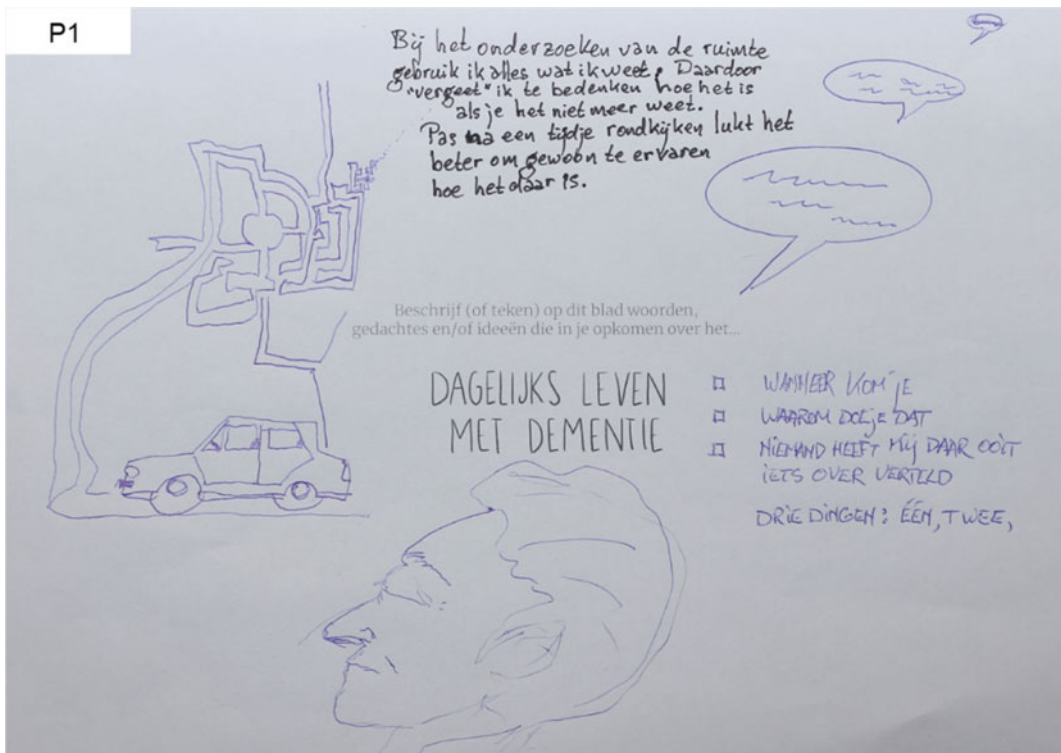 P1
Bij het onderzoeken van de ruimte
gebruik ik alles wat ik weet. Daardoor
"vergeet" ik te bedenken hoe het is
als je het niet meer weet.
Pas na een tijdje rondkijken lukt het
beter om gewoon te ervaren
hoe het daar is.
Beschrijf (of teken) op dit blad woorden,
gedachtes en/of ideeën die in je opkomen over het...
DAGELIJKS LEVEN
MET DEMENTIE
WANNEER KOM JE
WAAROM DOE JE DAT
NIEMAND HEEFT MIJ DAAR OOIT
IETS OVER VERTELD
DRIE DINGEN: ÉÉN, TWEE,